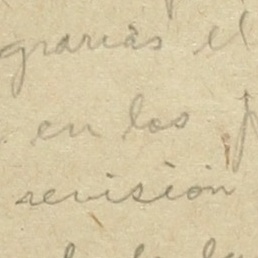 grarias el
en los
revisión